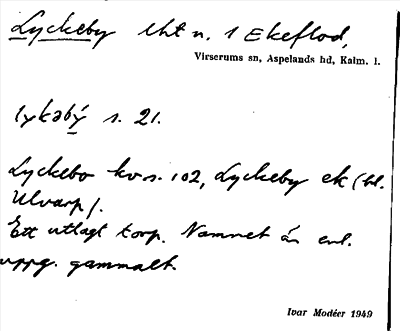 Lyckeby lht n. 1 Ekeflod,
Virserums sn, Aspelands hd, Kalm. l.
lykəbý s. 21.
Lyckebo kv s. 102, Lyckeby ek (bl.
Ulvarp).
Ett utlagt torp. Namnet är enl.
uppg. gammalt.
Ivar Modéer 1949